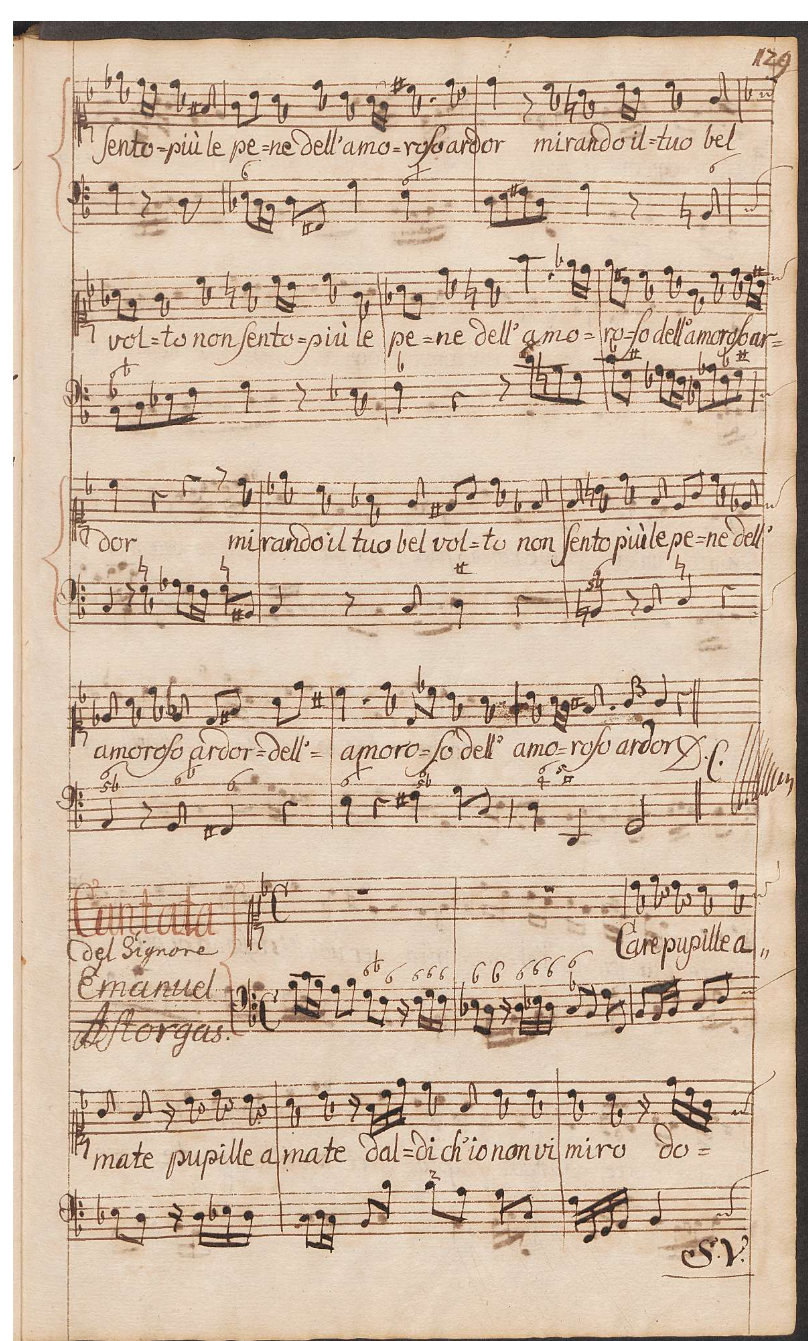 129
sento=più le pe=ne dell'amo=roso ardor mirando il=tuo bel
vol=to non sento=più le pe=ne dell' amo=ro=so dell'amoroso ar=
dor mirando il tuo bel vol=to non sento più le pe=ne dell'
amoroso ardor=dell'= amoro=so dell' amo=roso ardor D.C.
Cantata
del Signore
Emanuel
Astorgas.
Care pupille a,,
mate pupille amate dal=di ch'io non vi miro do=
S.V.